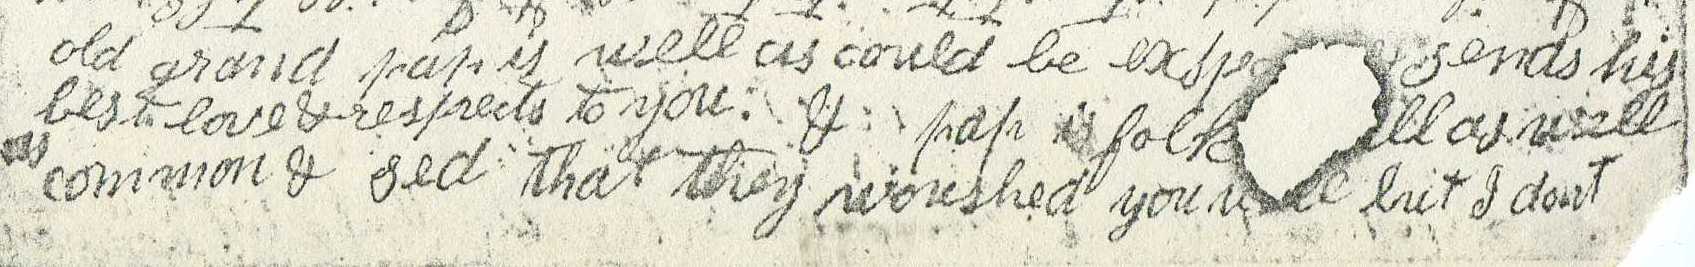 old grand pap is well as could be exspe & sends his
best love & respects to you. & pap is folk ll as well
as common & sed that they woushed you but I dont